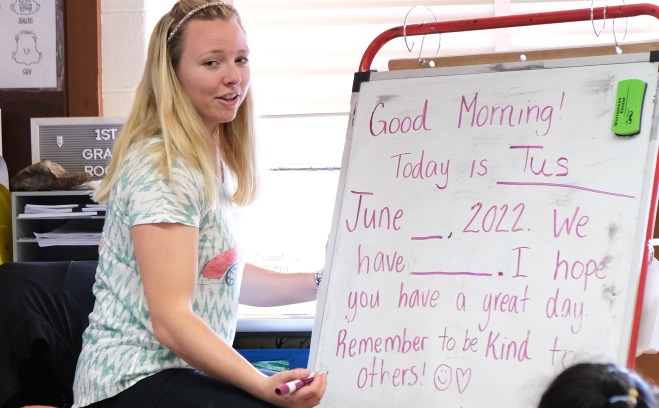 1ST
GRA
ROO
Good Morning!
Today is Tus
June __, 2022. We
have ______. I hope
you have a great day.
Remember to be Kind to
others! ☺♡